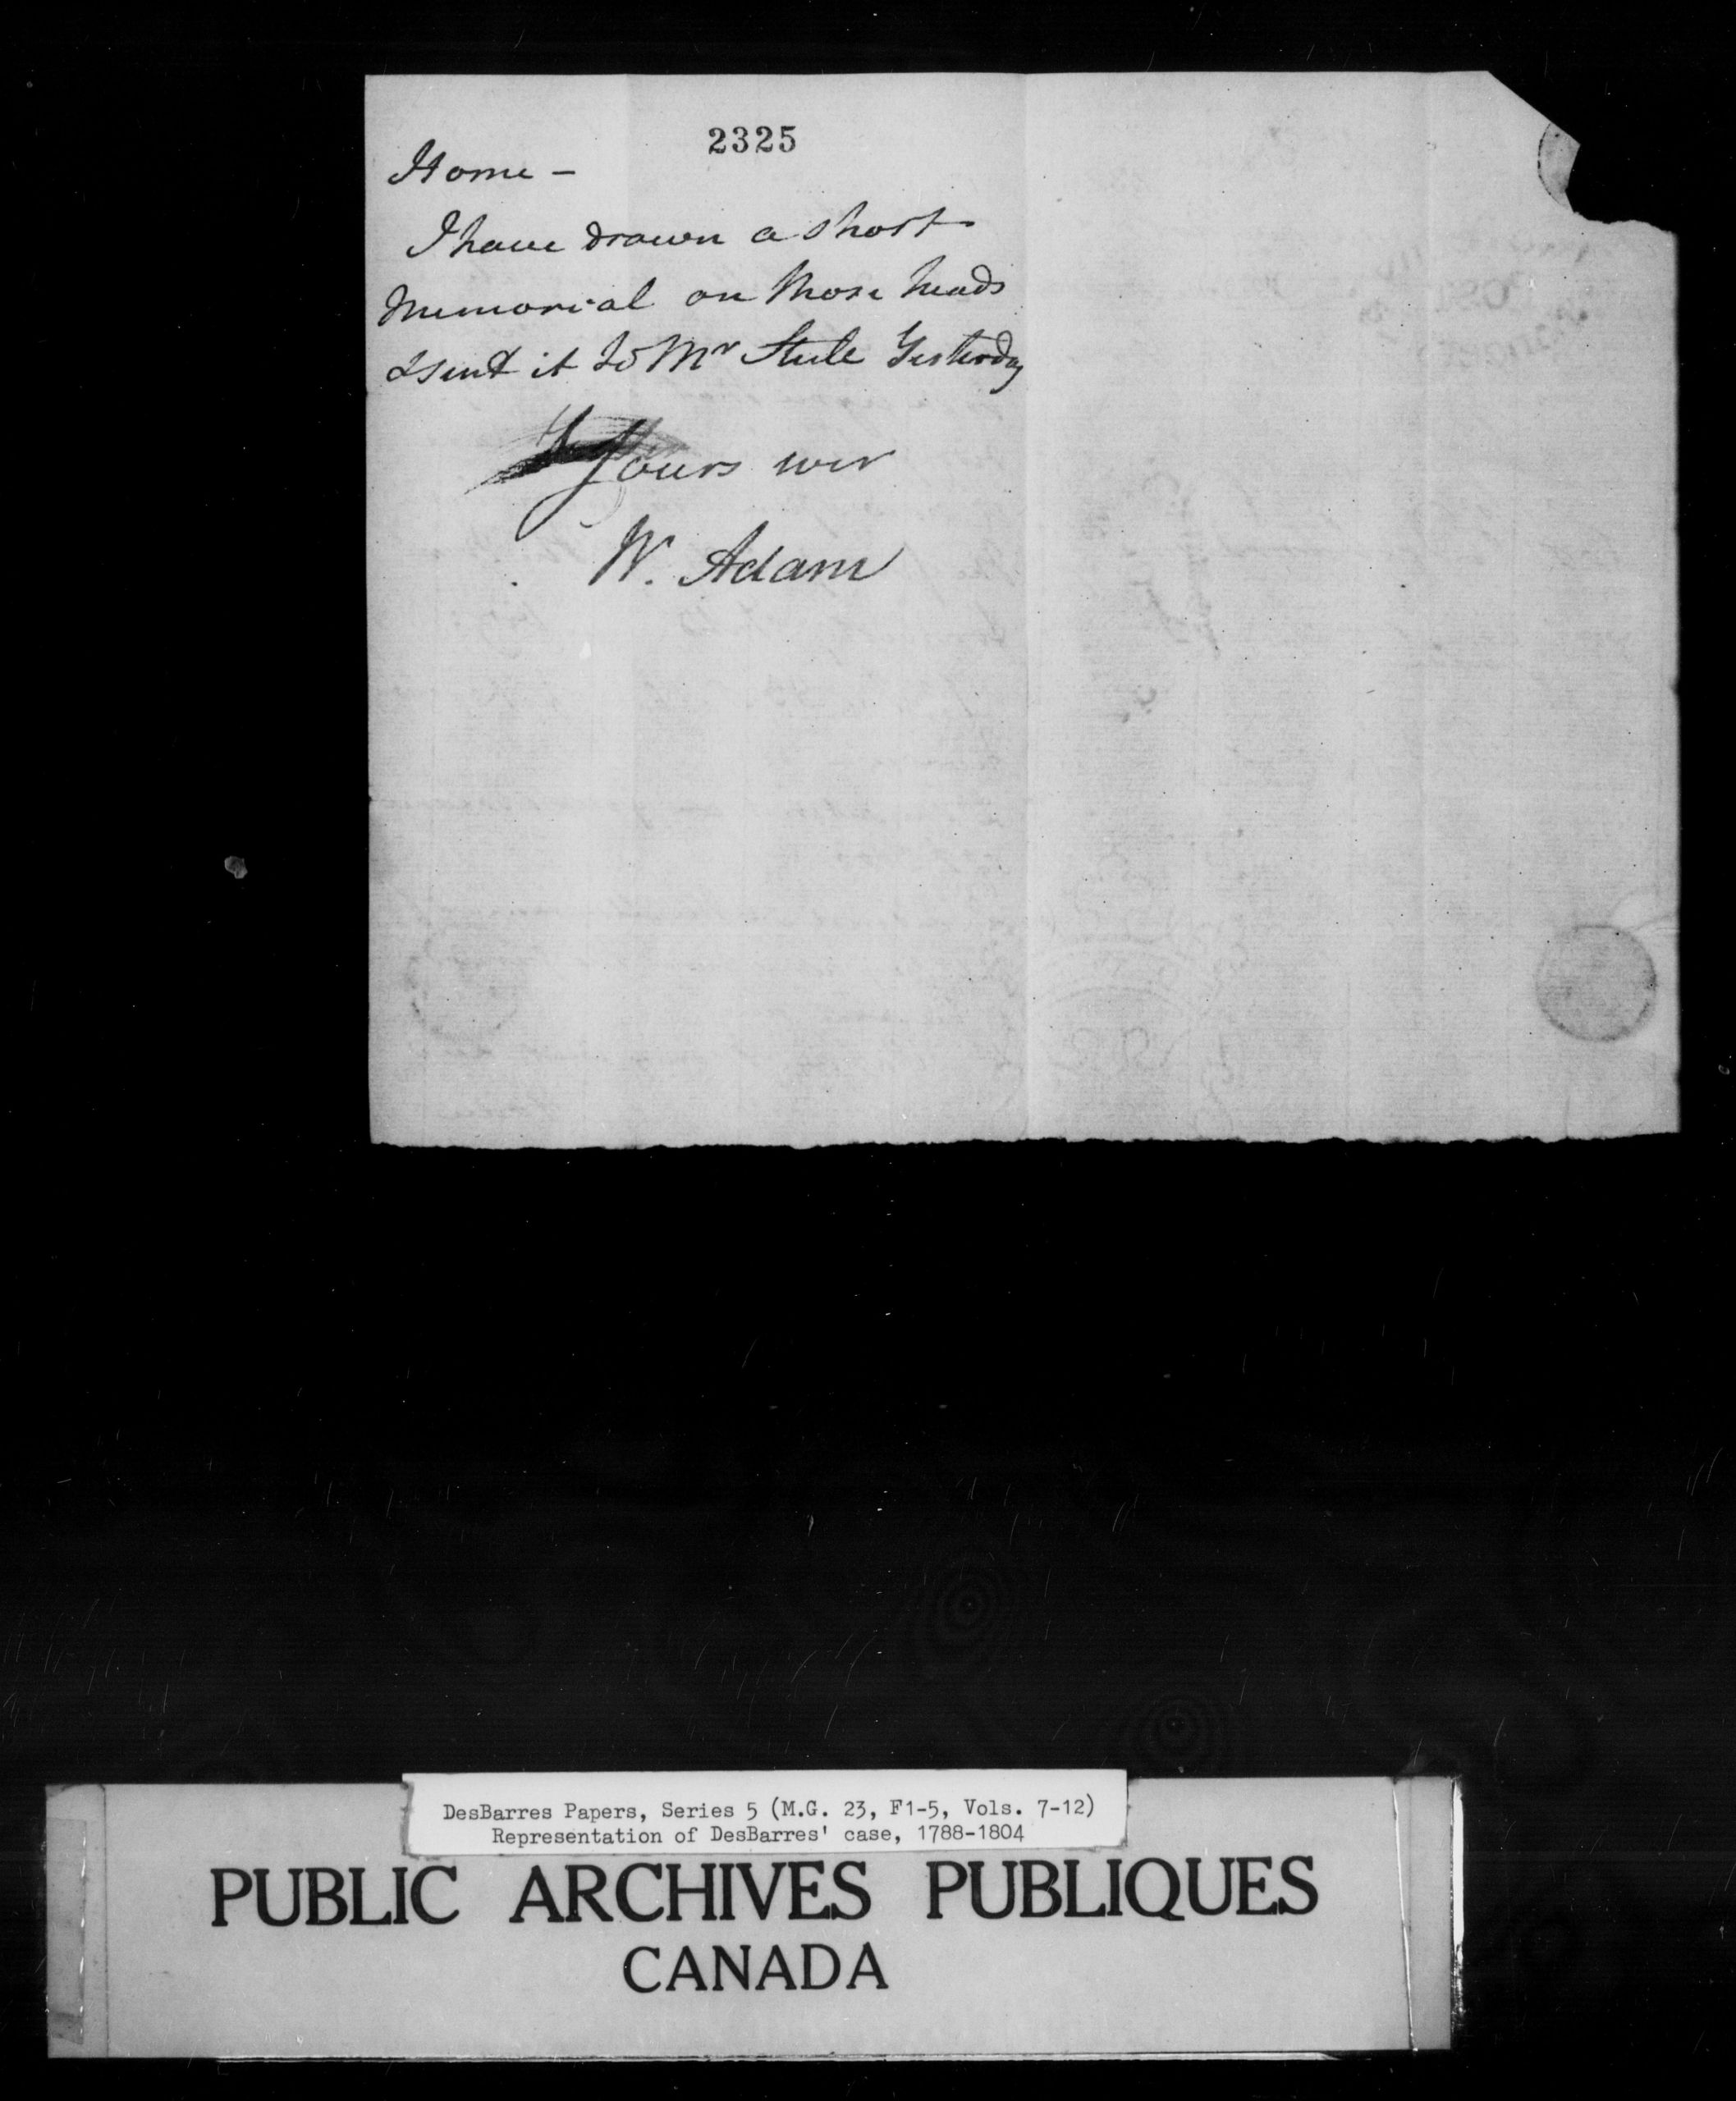 2325
Home –
I have drawn a short
Memorial on those heads
& sent it to Mr Steele Yesterday
Yours ever
W. Adam
DesBarres Papers, Series 5 (M.G. 23, F1-5, Vols. 7-12)
Representation of DesBarres' case, 1788-1804
PUBLIC ARCHIVES PUBLIQUES
CANADA